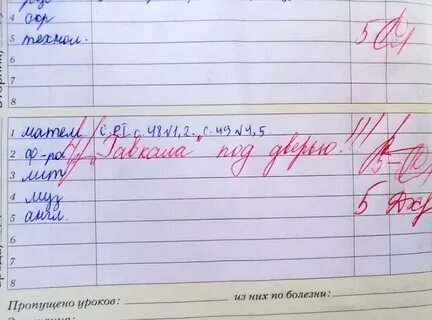 4 окр
5 технол. 5
6
7
8
1 матем с. РТ с. 48 №1, 2. с. 49 №4, 5.
2 ф-ра „Гавкала" под дверью!!!
3 лит 5-
4 муз
5 англ. 5
6
7
8
Пропущено уроков: из них по болезни: